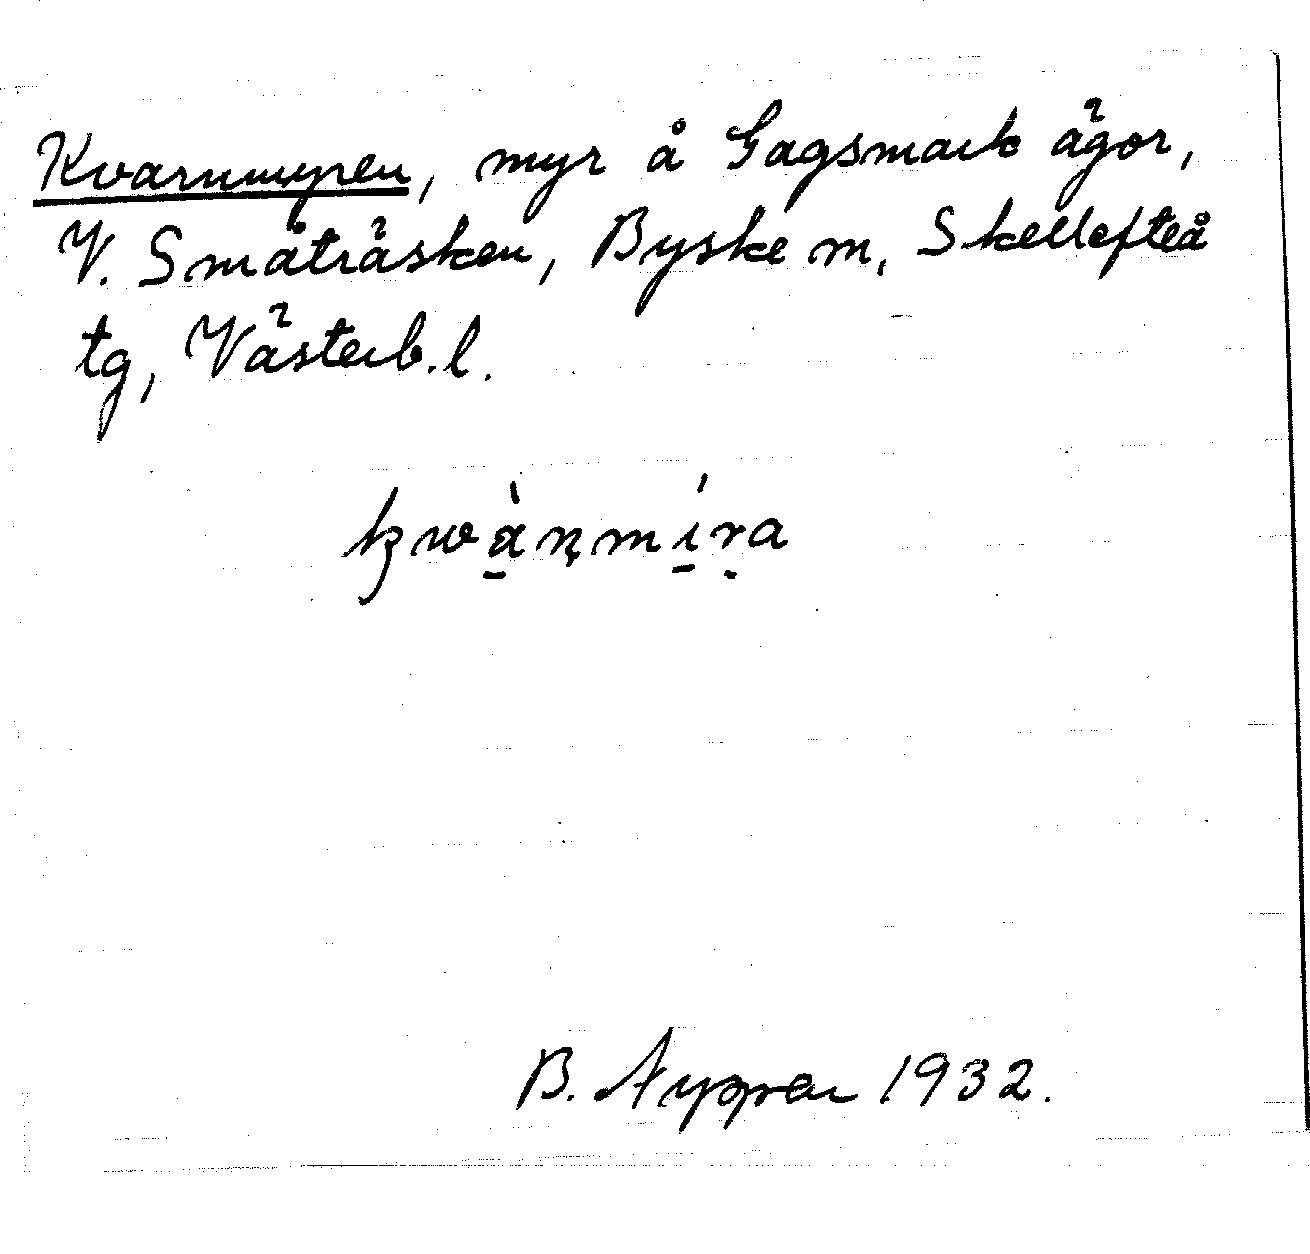 Kvarnmyren, myr å Gagsmark ägor,
V. Småträsken, Byske m, Skellefteå
tg, Västerb. l.
kwàṇmíṛa
B. 1932.